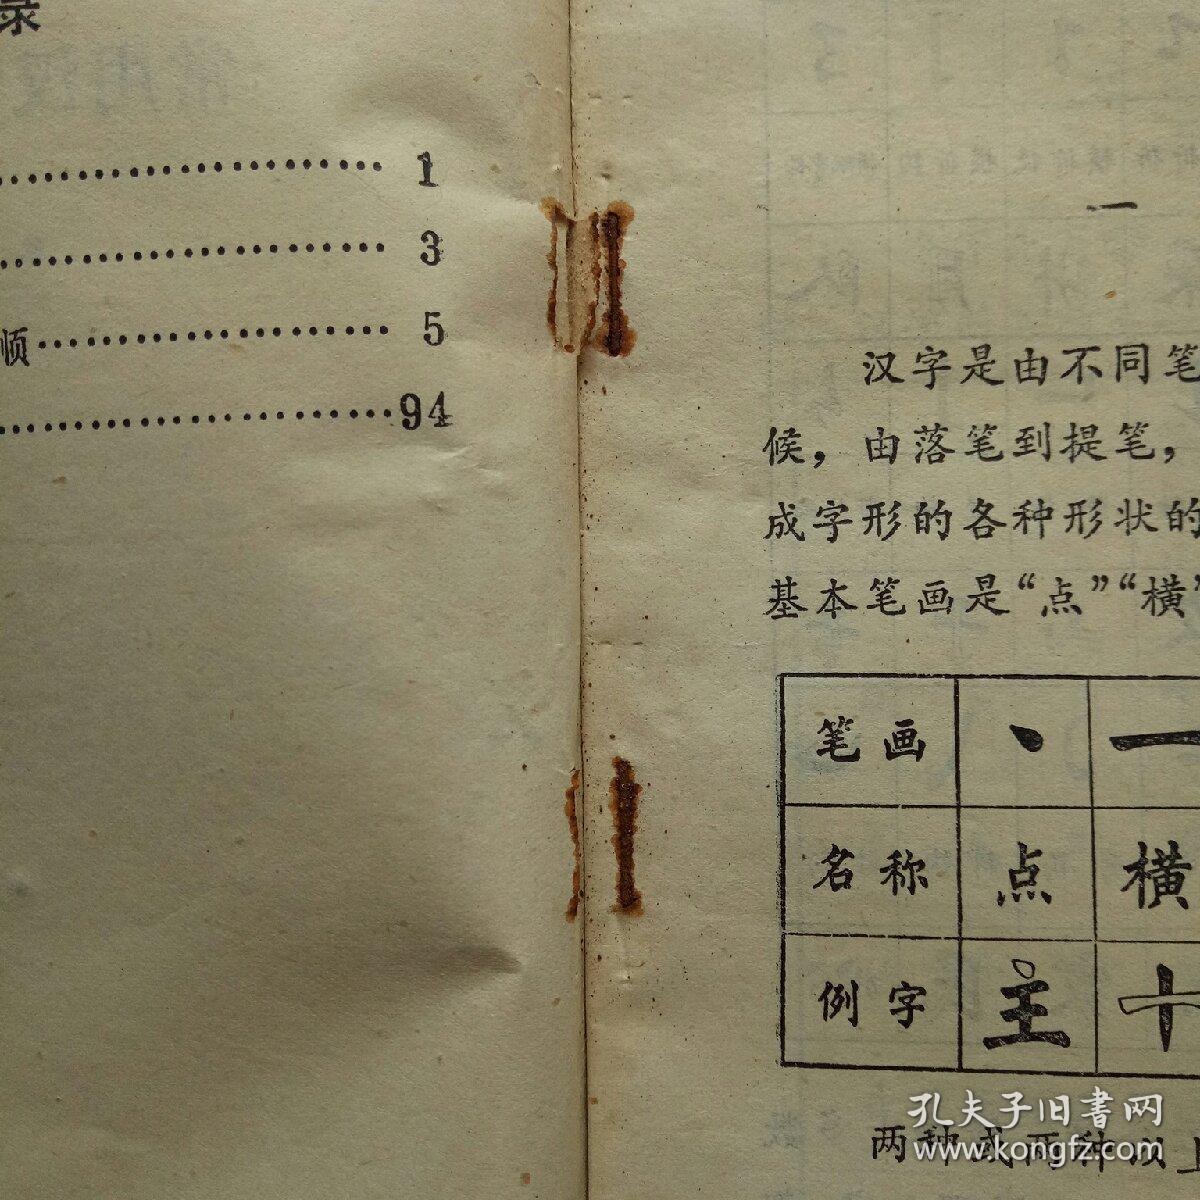 录
1
3
顺 5
94
一
汉字是由不同笔
候，由落笔到提笔，
成字形的各种形状的
基本笔画是“点”“横”
笔画 丶 一
名称 点 横
例字 主 十
两种或两种以上
孔夫子旧书网
www.kongfz.com